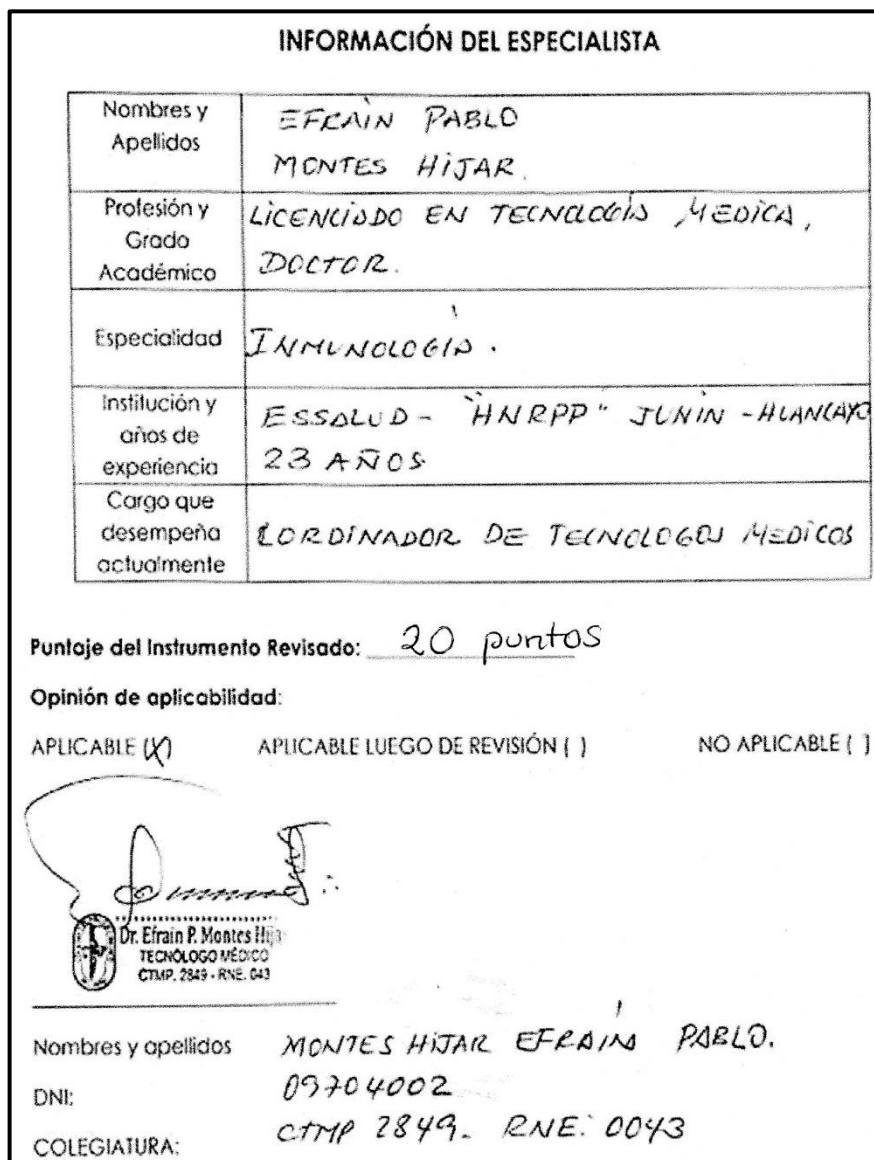 INFORMACIÓN DEL ESPECIALISTA
Nombres y Apellidos
EFRAÍN PABLO
MONTES HIJAR.
Profesión y Grado Académico
LICENCIADO EN TECNOLOGÍA MEDICA,
DOCTOR.
Especialidad
INMUNOLOGÍA.
Institución y años de experiencia
ESSALUD - "HNRPP" JUNIN - HUANCAYO
23 AÑOS
Cargo que desempeña actualmente
CORDINADOR DE TECNOLOGOS MEDICOS
Puntaje del Instrumento Revisado: 20 puntos
Opinión de aplicabilidad:
APLICABLE (X) APLICABLE LUEGO DE REVISIÓN ( ) NO APLICABLE ( )
Dr. Efrain P. Montes Hija
TECNÓLOGO MÉDICO
CTMP. 2849 - RNE. 043
Nombres y apellidos MONTES HIJAR EFRAÍN PABLO.
DNI: 09704002
COLEGIATURA: CTMP 2849. RNE. 0043